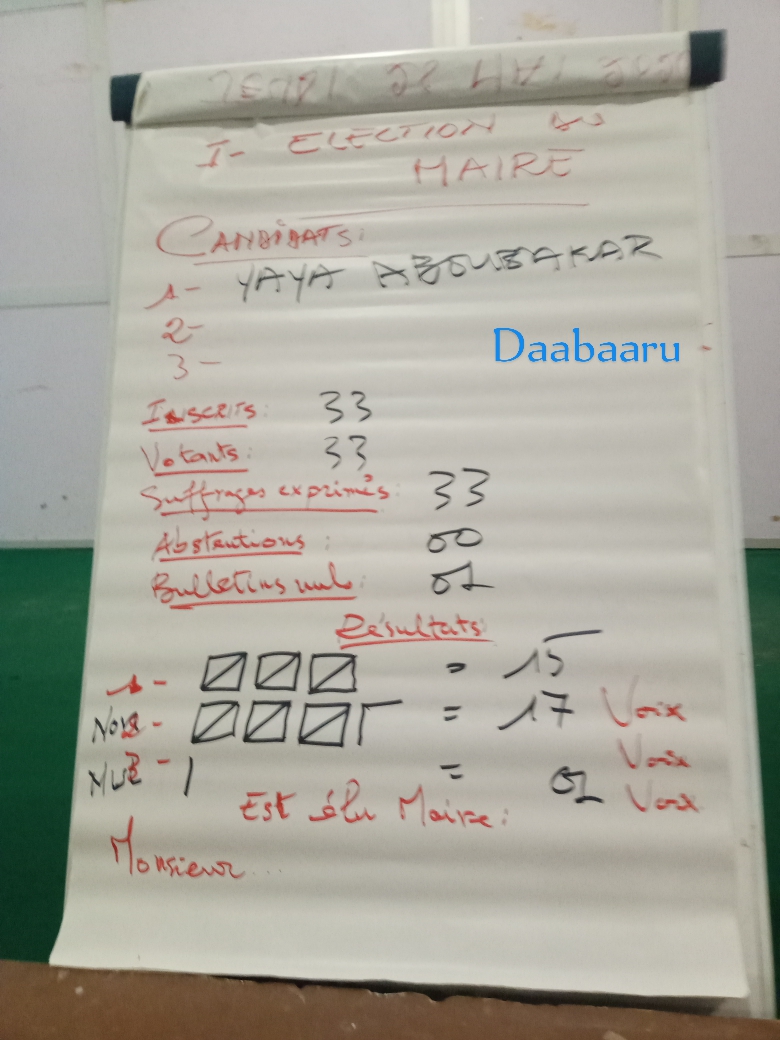 I- ELECTION DU
MAIRE
CANDIDATS:
1- YAYA ABOUBAKAR
2-
3-
Daabaaru
Inscrits: 33
Votants: 33
Suffrages exprimés: 33
Abstentions: 00
Bulletins nuls: 01
Résultats
1- = 15 Voix
NON - = 17 Voix
NUL - = 01 Voix
Est élu Maire:
Monsieur...